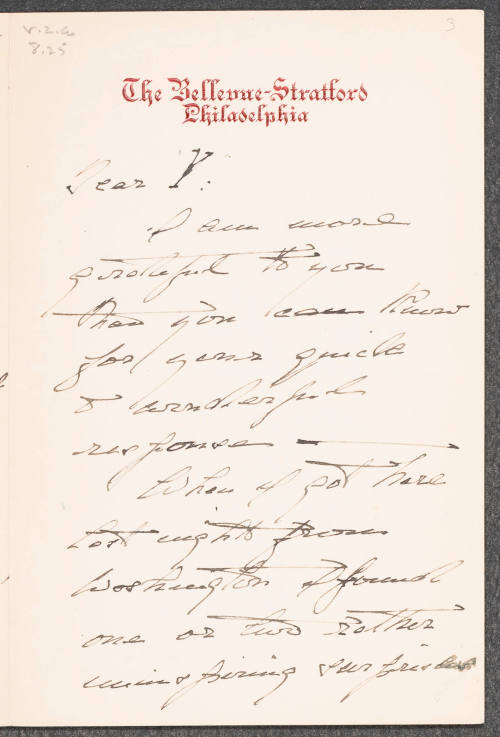 v.2.a
8.25
3
The Bellevue-Stratford
Philadelphia
Dear Y:
I am more
grateful to you
than you can know
for your quick
& wonderful
response —
When I got here
last night from
Washington I found
one or two rather
uninspiring surprises